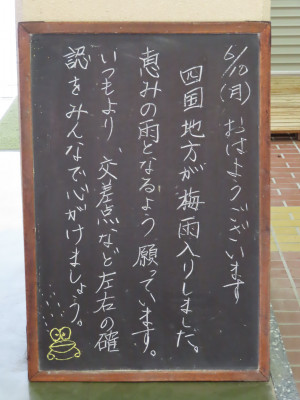 6/10(月) おはようございます
四国地方が梅雨入りしました。
恵みの雨となるよう 願っています。
いつもより、交差点など左右の確
認をみんなで心がけましょう。